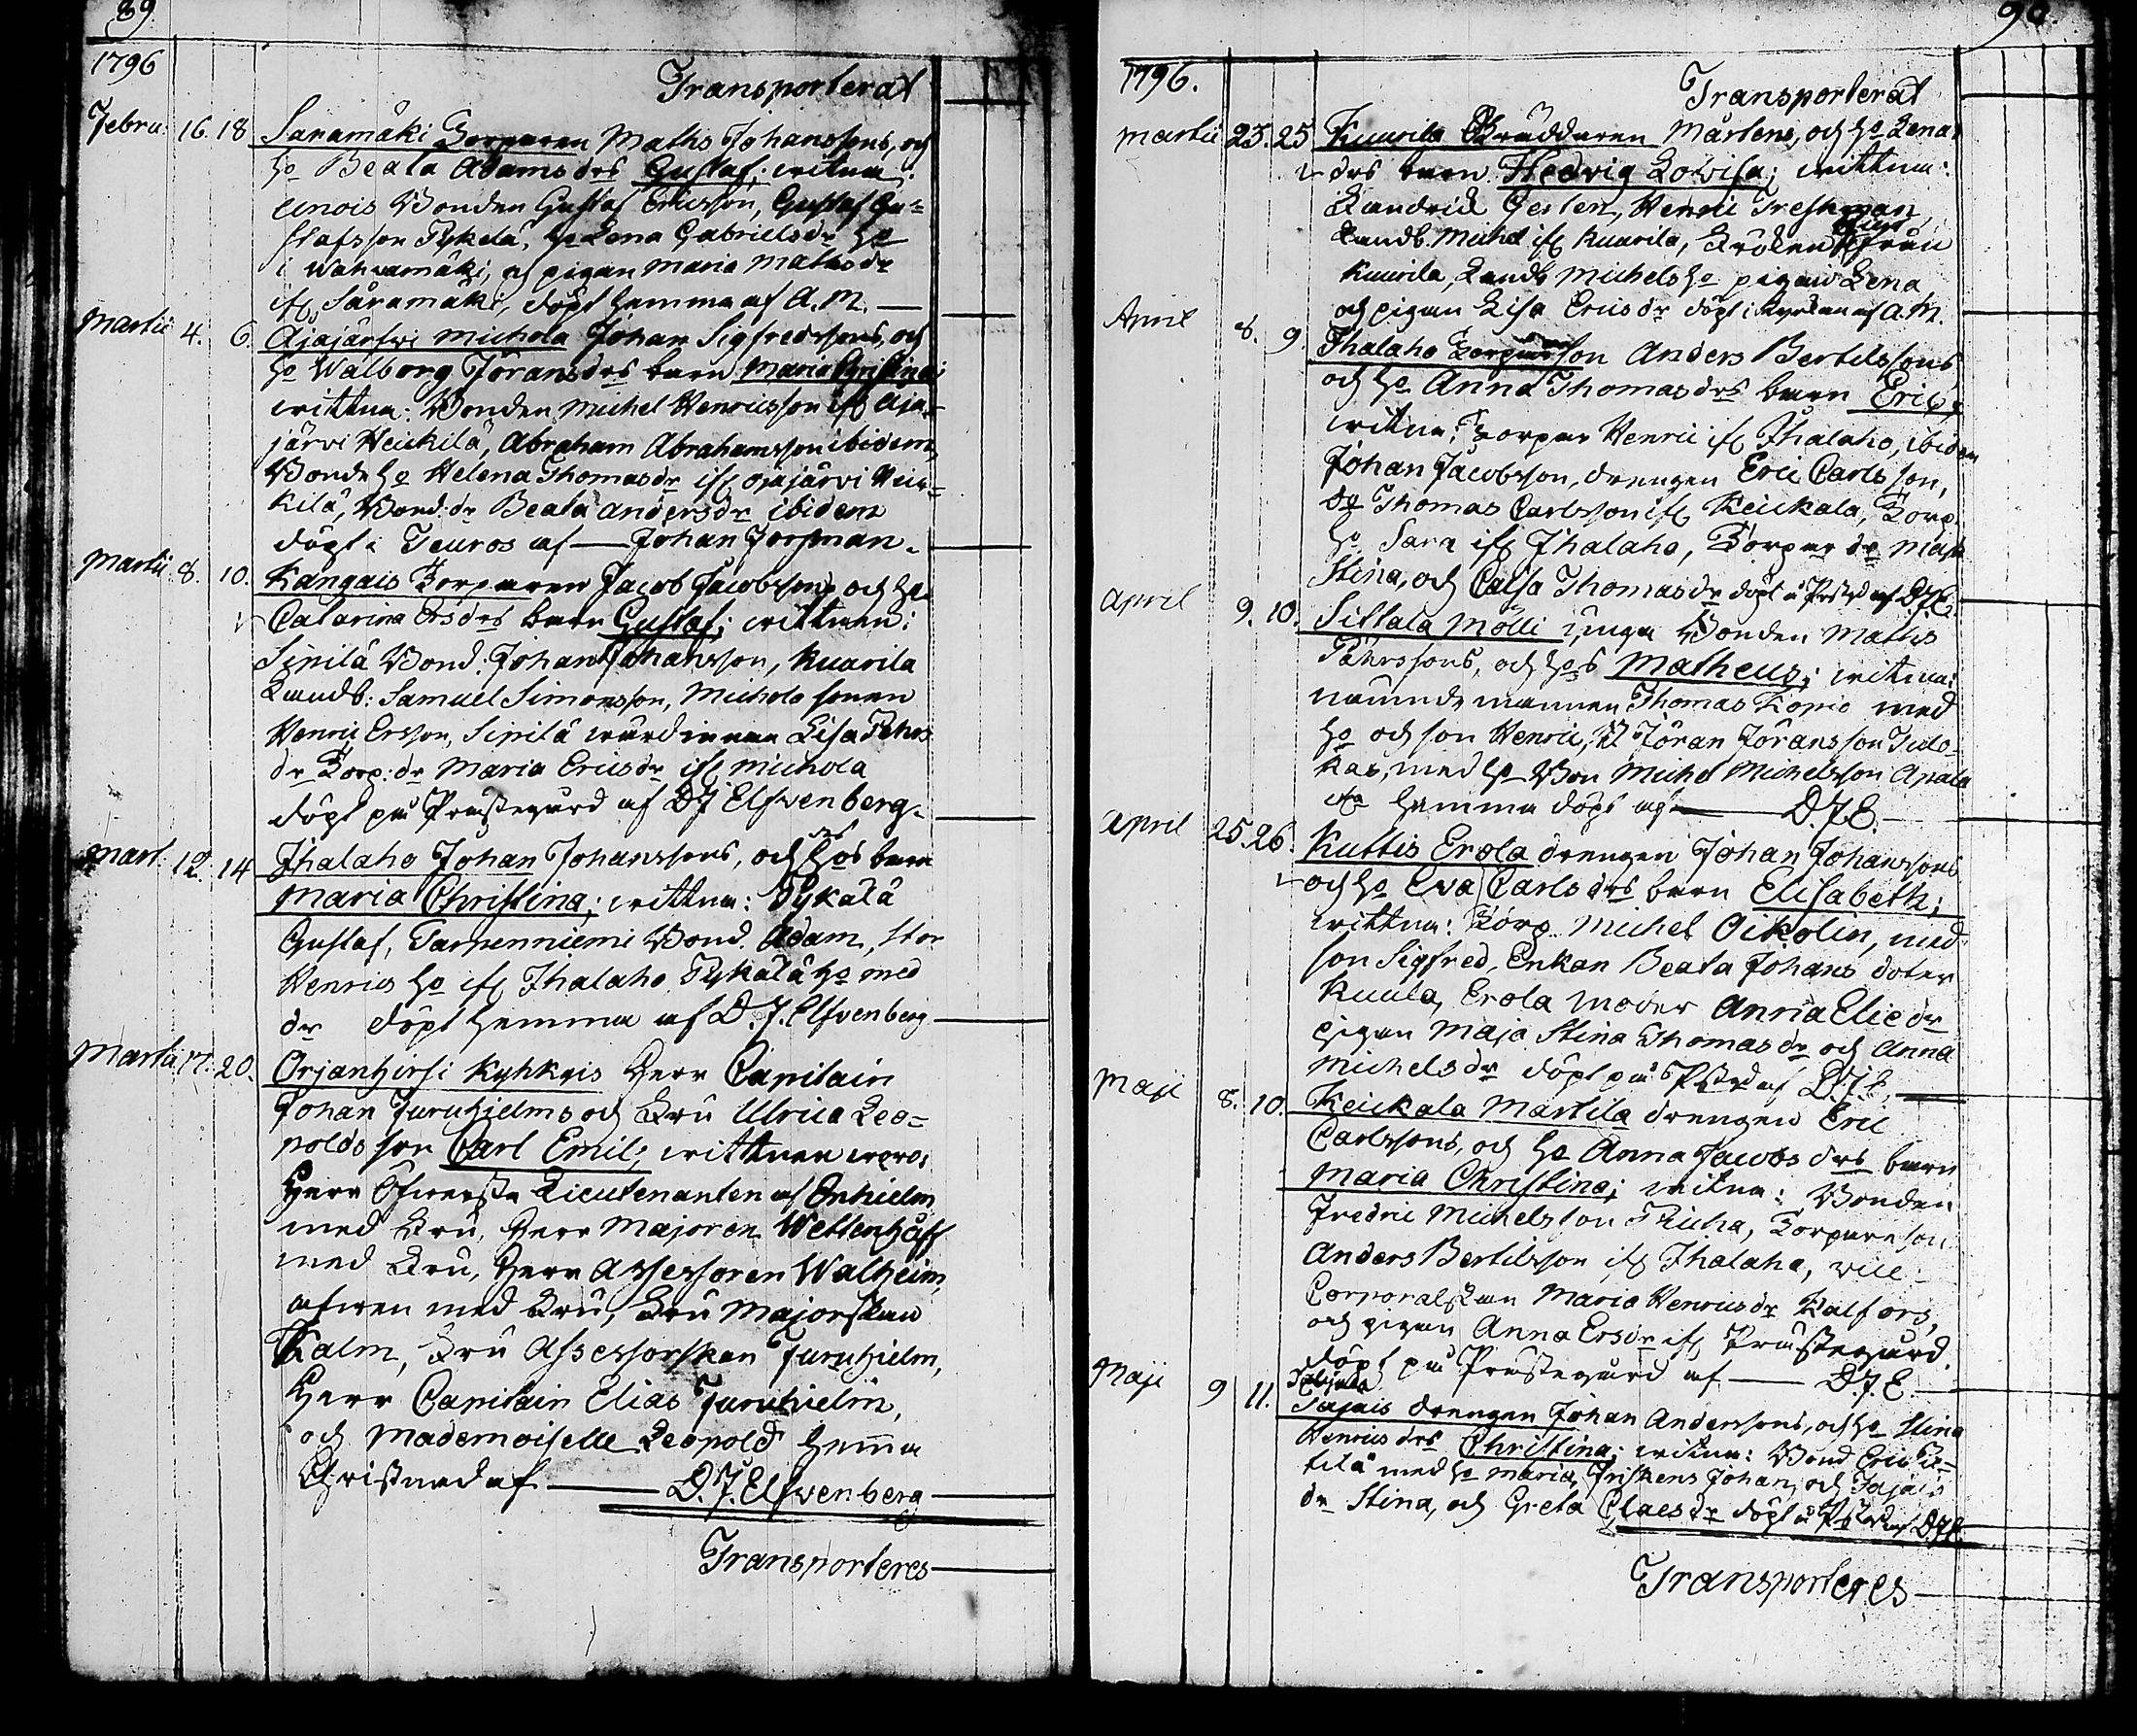 89.
1796
Transporterat
Febru: 16. 18 Saramäki Torparen Maths Johanssons, och
ho Beata Adamsdrs Gustaf; vitna:
Bonden Gustaf Ericsson, Gustaf Gu=
stafsson Pykelä, ho Lena Gabrielsdr ho
i Wahvamäki, och pigan Maria Mathsdr
ifr Saramäki, döpt hemma af A. M.
Martii 4. 6. Ajajärfwi Michola Johan Sigfredssons, och
ho Walborg Jöransdrs barn Maria Christina;
vittna: Bonden Michel Henricsson ifr Aja=
järvi Heickilä, Abraham Abrahamsson ibidem,
Bonde ho Helena Thomasdr ifr Ajajärvi Heic=
kilä, Bond: dr Beata Andersdr ibidem
döpt i Teuros af Johan Forsman.
Martii 8. 10. Kangais Torparen Jacob Jacobssons och ho
Catarina Ersdrs barn Gustaf; vittnen:
Sipilä Bond: Johan Johansson, Kuurila
Landb: Samuel Simonsson, Michola sonen
Henric Ersson, Sipilä wärdinnan Lisa Pehrs
dr Torp: dr Maria Ericsdr ifr Michola
döpt på Prästegård af D J Elfvenberg.
Mart: 12. 14 Ihalaho Johan Johanssons, och hos barn
Maria Christina; vittna: Pykälä
Gustaf, Tarpenniemi Bond. Adam, Stor
Henrics ho ifr Ihalaho, Pykälä ho med
dr döpt hemma af D. J. Elfvenberg
Martii 17. 20. Orjanhirsi Kyhkyis Herr Capitain
Johan Furuhjelms och Fru Ulrica Leo=
polds son Carl Emil; vittnen woro:
Herr Öfwerste Lieutenanten af Enhielm
med Fru, Herr Majoren Wettenhoff
med Fru, Herr Assessoren Walheim,
äfwen med Fru, Fru Majorskan
Kalm, Fru Assessorskan Furuhielm,
Herr Capitain Elias Furuhielm,
och Mademoiselle Leopold hemma
Christnad af D. J. Elfvenberg
Transporteres
90.
1796.
Transporterat
Martii 23. 25 Kuurila Mårtens, och ho Lena
drs barn Hedvig Lovisa; vittna:
Henric
Landb. Michel ifr Kuurila, från
Kuurila, Landb Michels ho pigan Lena
och pigan Lisa Ericsdr döpt i Kyrkan af A. M.
April 8. 9. Ihalaho Torpareson Anders Bertilssons
och ho Anna Thomasdrs barn Eric;
vittna: Torpar Henric ifr Ihalaho, ibidem
Johan Jacobsson, drengen Eric Carlsson,
Thomas Carlsson ifr Keickala, Torp.
ho Sara ifr Ihalaho, Torpar dr Maja
Stina, och Caisa Thomasdr döpt å Prstgd af D.J.E.
April 9. 10. Sittala Mölli unga Bonden Maths
Pährssons, och hos Matheus; vittna:
nämndemannen Thomas Kopio med
ho och son Henric, Jöran Jöransson Tulo=
kas, med ho Bon Michel Michelsson Apala
hemma döpt af D. J. E.
April 25. 26. Kuttis Erola drengen Johan Johanssons
och ho Eva Carlsdrs barn Elisabeth;
vittna: Torp. Michel Oikolin, med
son Sigfred, Enkan Beata Johans doter
Kuula, Erola Moder Anna Eliedr
pigan Maja Stina Thomasdr och Anna
Michelsdr döpt på Pstgd af D. J. E.
Maji 8. 10. Keickala Martila drengen Eric
Carlssons, och ho Anna Jacobsdrs barn
Maria Christina; vitna: Bonden
Fredric Michelsson Ticha, Torpareson
Anders Bertilsson ifr Ihalaho, vice
Corporalskan Maria Henricsdr Kalfors,
och pigan Anna Ersdr ifr Prästegård.
döpt på Prästegård af D. J. E.
Maji 9 11. Sajais drengen Johan Anderssons, och ho Stina
Henricsdrs Christina; vitna: Bond Eric
tilä med ho Maria, Friskens Johan, och Sajais
dr Stina, och Greta Claesdr döpt å Pstgd af D. J. E.
Transporteres